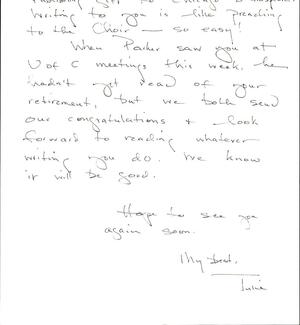 to Chicago
writing to you is like preaching
to the Choir — so easy!
When Parker saw you at
U of C meetings this week, he
hadn't yet read of your
retirement, but we both send
our congratulations + look
forward to reading whatever
writing you do. We know
it will be good.
Hope to see you
again soon.
My best,
Julie